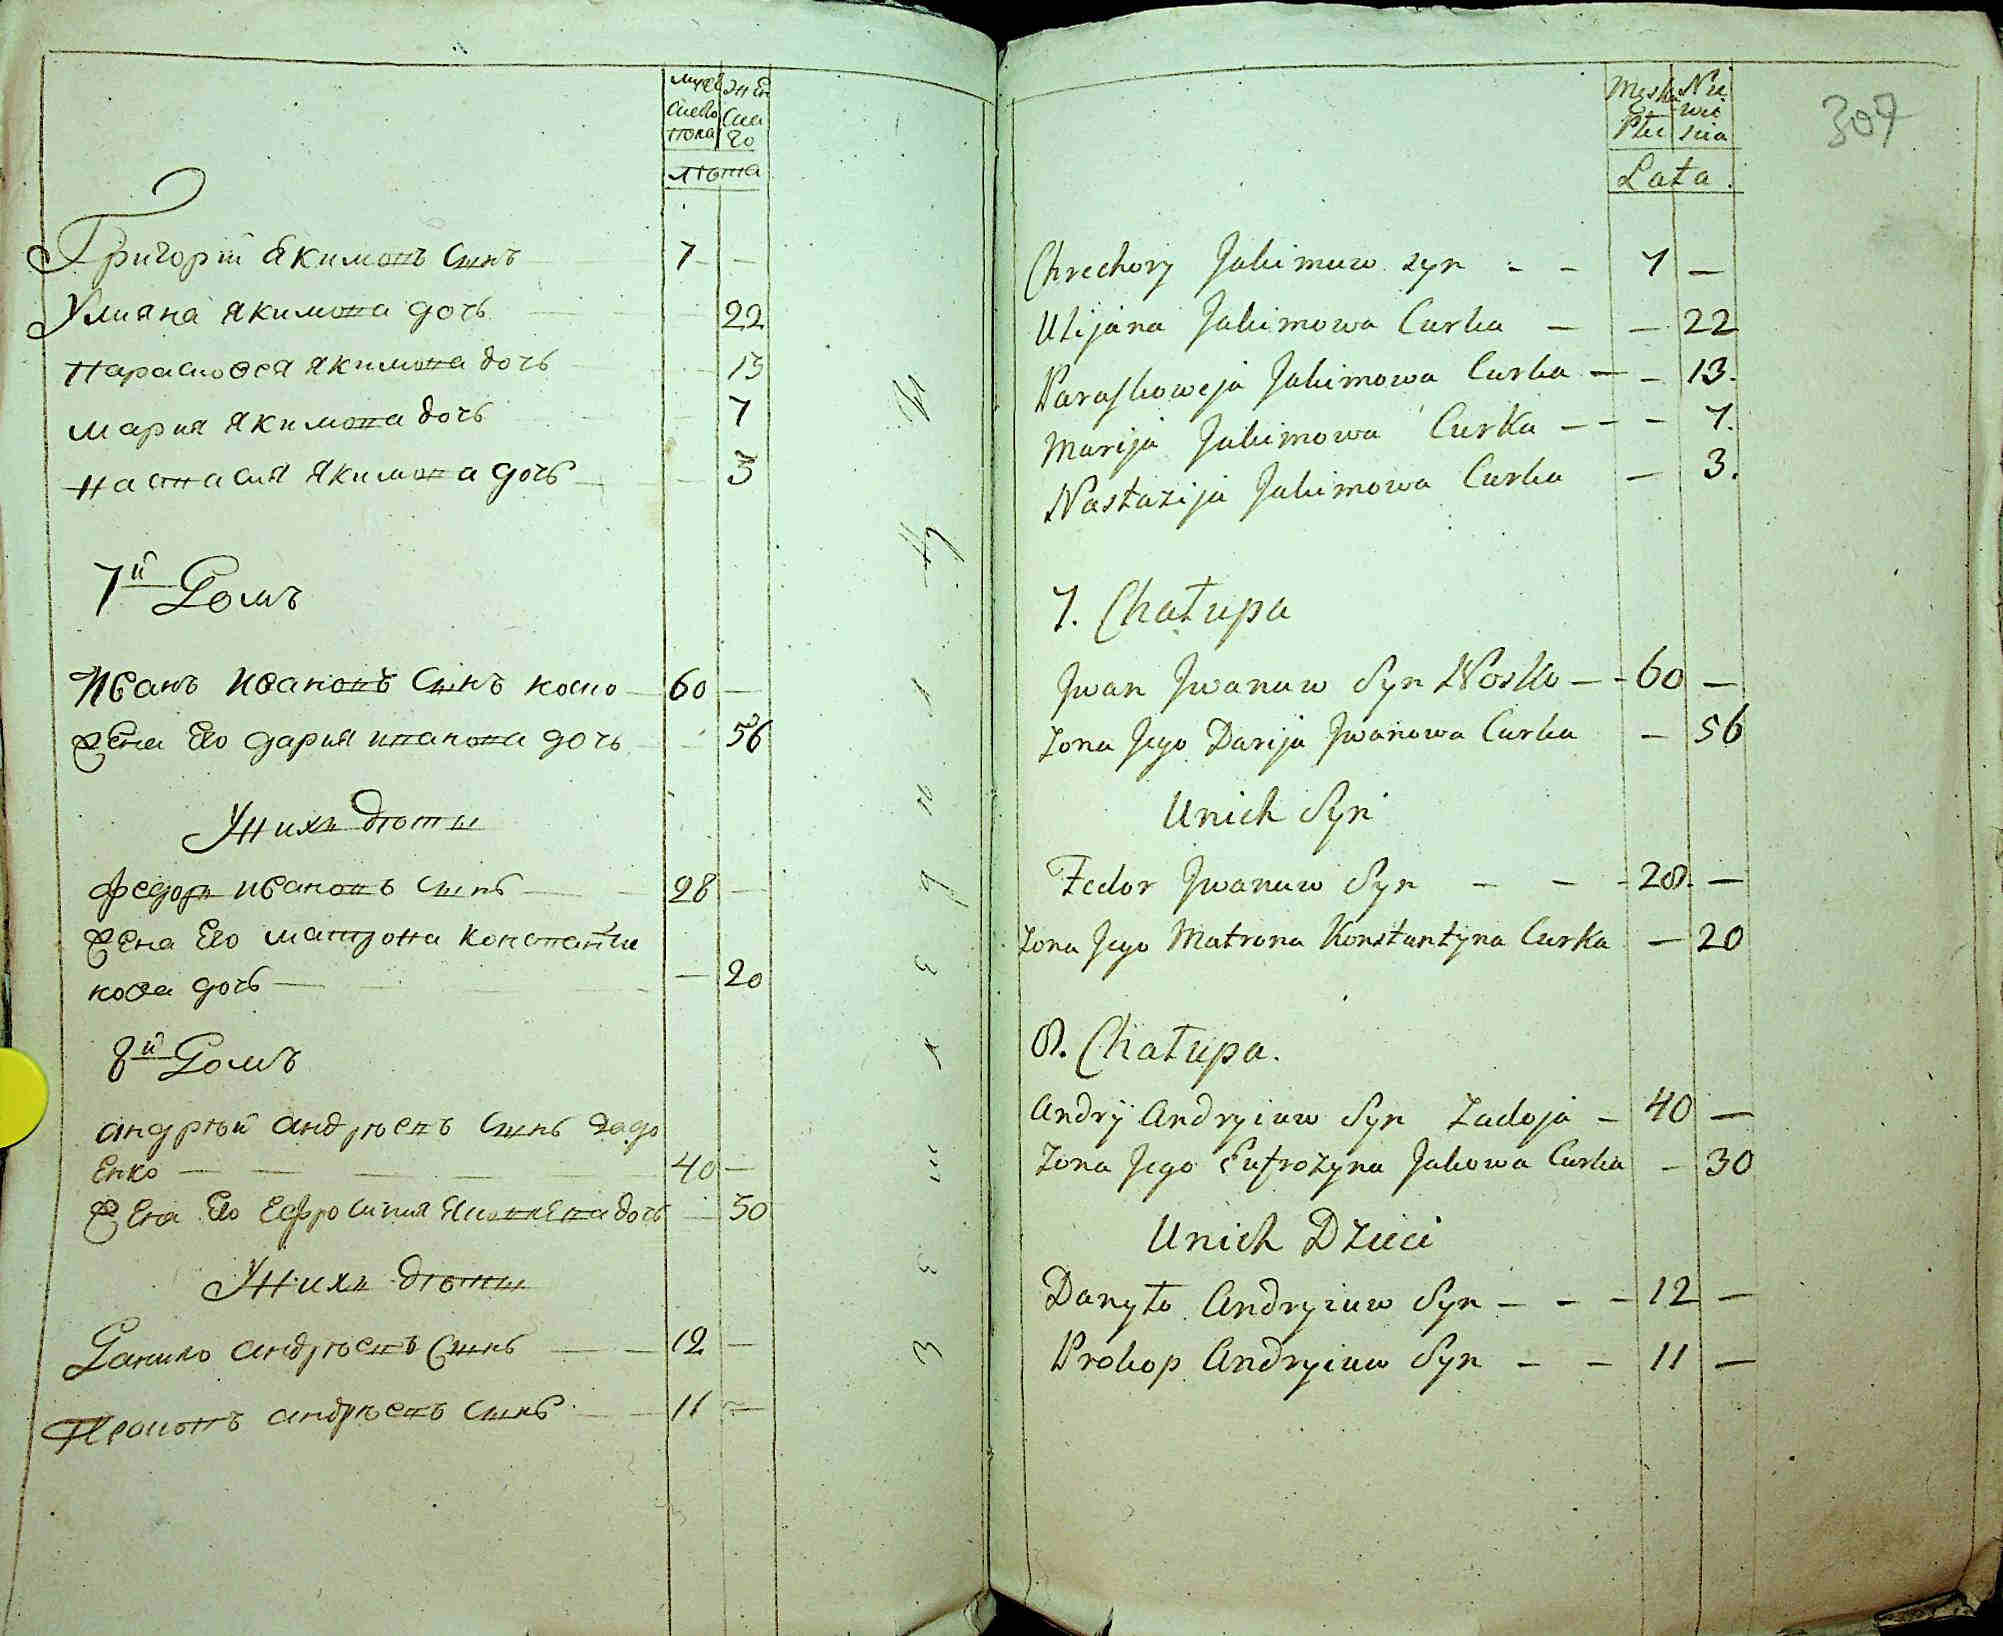 мужеска пола
женскаго
лѣта
Григорій Якимовъ сынъ 7 —
Улияна Якимова дочь — 22
Парасковея Якимова дочь — 13
Мария Якимова дочь — 7
Настасия Якимова дочь — 3
7й Домъ
Иванъ Ивановъ сынъ носко 60 —
Жена Его дария иванова дочь — 56
У нихъ дѣти
Федоръ ивановъ сынъ 28 —
Жена Его матрона Константи
нова дочь — 20
8й Домъ
андрѣй андрѣевъ сынъ
Енко 40 —
Жена Его Ефросиния дочь — 30
У нихъ дѣти
Данило андрѣевъ сынъ 12 —
андрѣевъ сынъ 11 —
307
Męska Płci
Nie wie scia
Lata.
Chrechory Jakimuw syn - - 7 —
Ulijana Jakimowa Curka — — 22
Paraskoweja Jakimowa Curka — - 13.
Marija Jakimowa Curka — - - 7.
Nastazija Jakimowa Curka — 3.
7. Chałupa
Jwan Jwanuw Syn Nosko — - 60 —
Zona Jego Darija Jwanowa Curka — 56
Unich Syn
Fedor Jwanuw Syn — — - 28. —
Zona Jego Matrona Konstantyna Curka — 20
8. Chałupa.
Andry Andryiuw Syn Zadoja — 40 —
Zona Jego Eufrozyna Jakowa Curka — 30
Unich Dzieci
Danyło Andryiuw Syn — — — 12 —
Prokop Andryiuw Syn — — 11 —